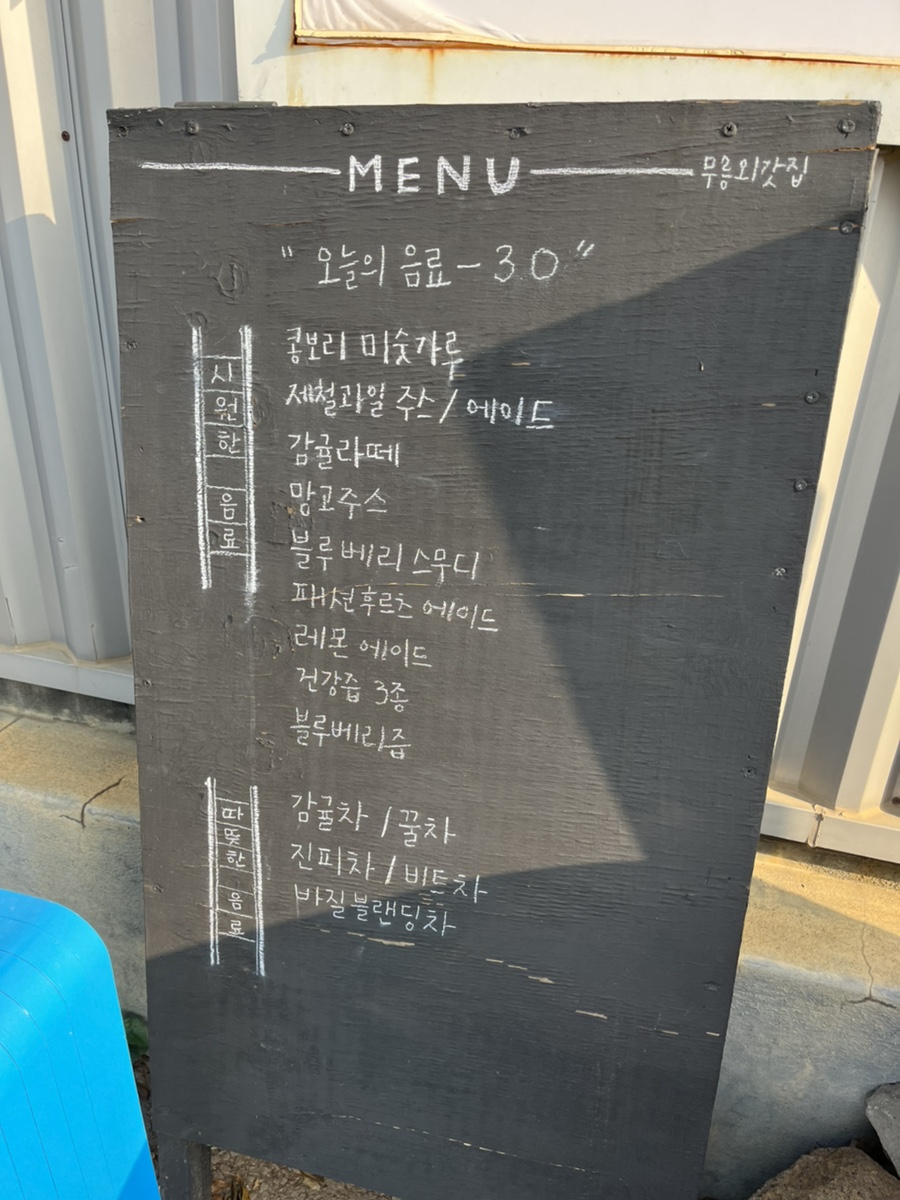 MENU 무릉외갓집
" 오늘의 음료 - 3.0 "
시원한 음료
콩보리 미숫가루
제철과일 주스 / 에이드
감귤라떼
망고주스
블루베리 스무디
패션후르츠 에이드
레몬 에이드
건강즙 3종
블루베리즙
따뜻한 음료
감귤차 / 꿀차
진피차 / 비트차
바질블랜딩차